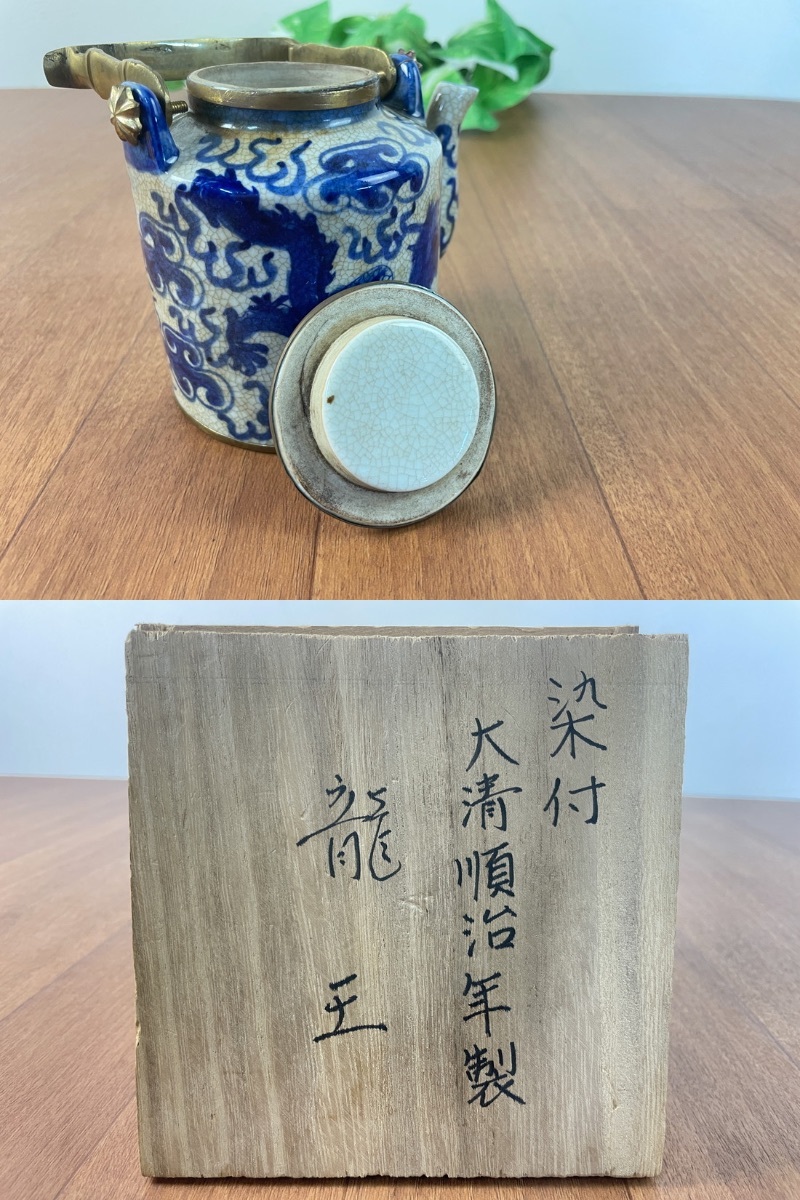 染付
大清順治年製
龍王